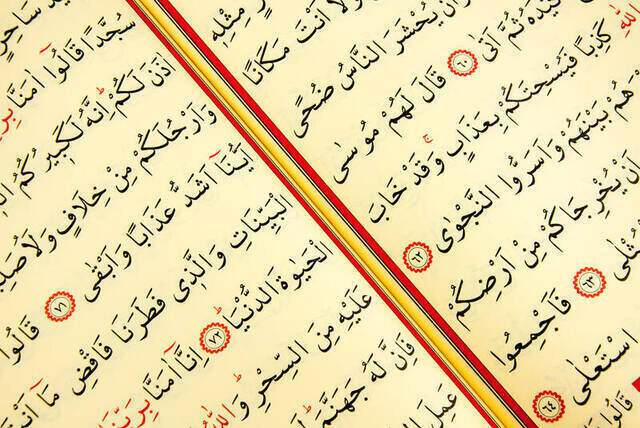 مِثْلِهِ
وَلَا اَنْتَ مَكَانًا
اَنْ يُحْشَرَ النَّاسُ ضُحًى
كَيْدَهُ ثُمَّ اَتٰى ٦٠ قَالَ لَهُمْ مُوسٰى
اللّٰهِ كَذِبًا فَيُسْحِتَكُمْ بِعَذَابٍ وَقَدْ خَابَ
هُمْ بَيْنَهُمْ وَاَسَرُّوا النَّجْوٰى ٦٢
اَنْ يُخْرِجَاكُمْ مِنْ اَرْضِكُمْ
ثْلٰى ٦٣ فَاَجْمِعُوا
اسْتَعْلٰى ٦٤
قَالُوا
سَاحِرٍ
سُجَّدًا قَالُٓوا اٰمَنَّا بِرَبِّ
اٰذَنَ لَكُمْ اِنَّهُ لَكَبِيرُكُمُ
وَاَرْجُلَكُمْ مِنْ خِلَافٍ وَلَاُصَلِّ
اَيُّنَٓا اَشَدُّ عَذَابًا وَاَبْقٰى ٧١ قَالُوا
الْبَيِّنَاتِ وَالَّذِى فَطَرَنَا فَاقْضِ مَٓا اَنْتَ
الْحَيٰوةَ الدُّنْيَا ٧٢ اِنَّٓا اٰمَنَّا بِرَبِّنَا
عَلَيْهِ مِنَ السِّحْرِ وَاللّٰهُ
فَاِنَّ لَهُ جَهَنَّمَ
عَمِلَ